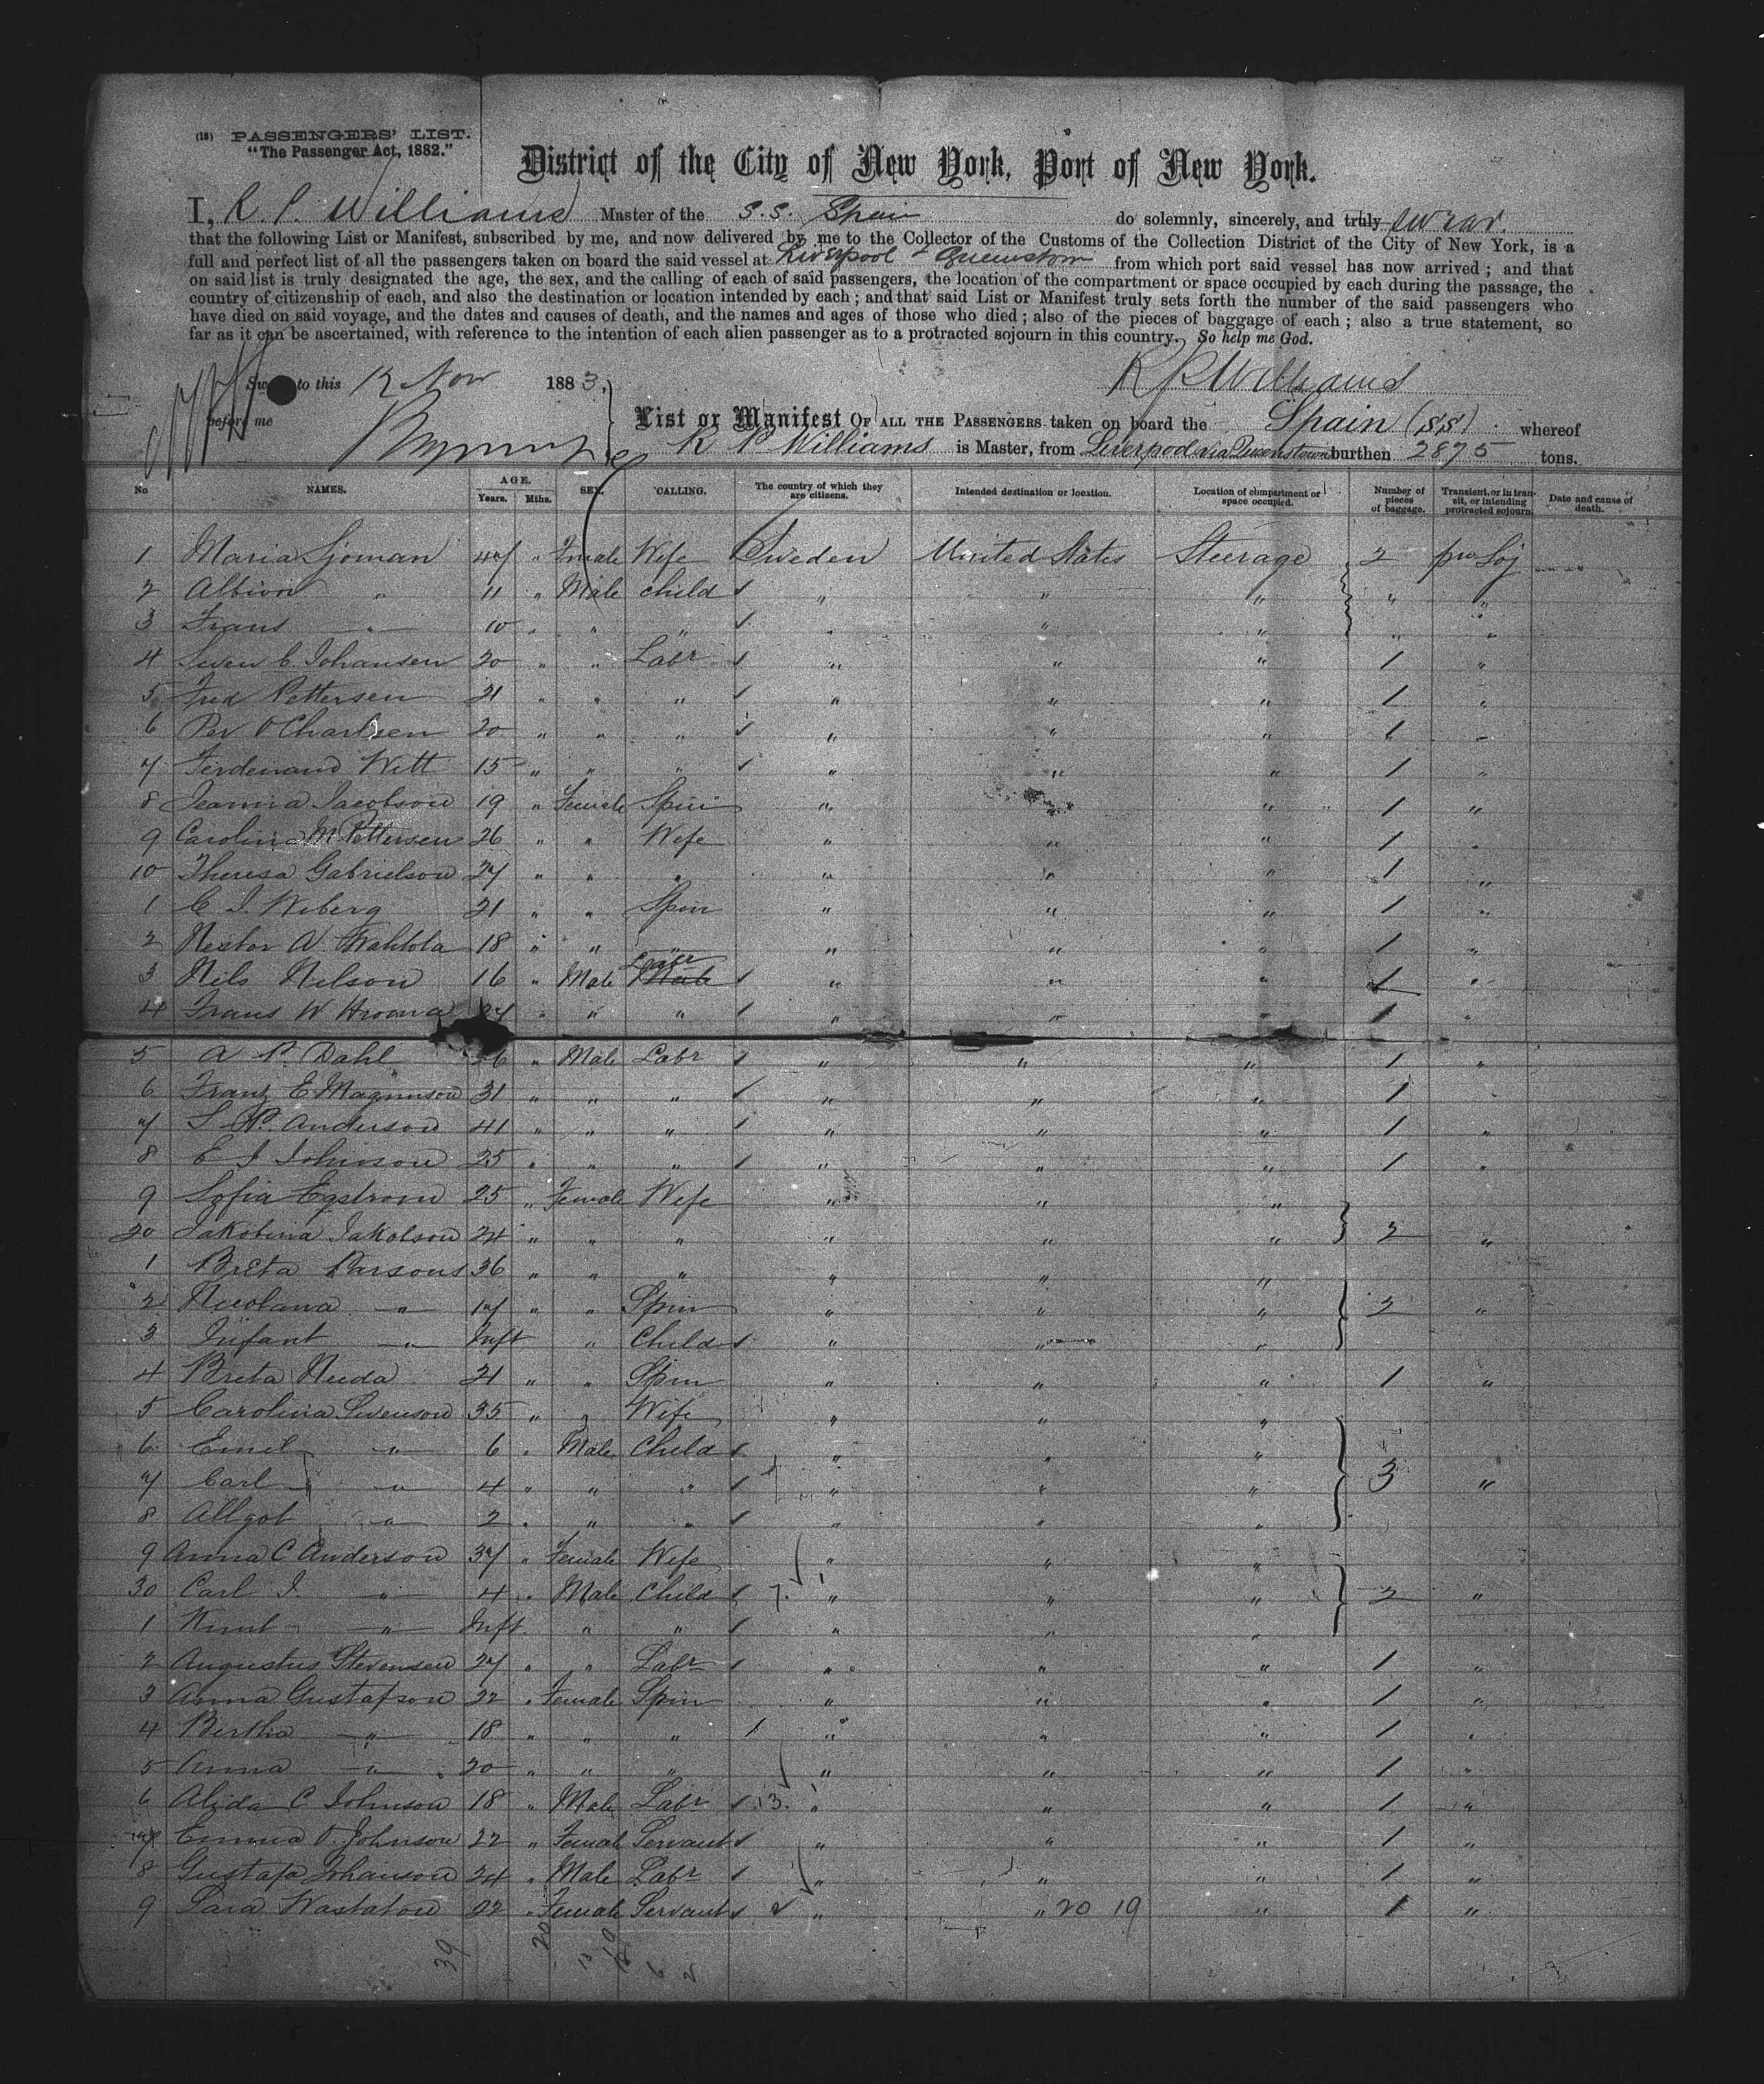 (18) PASSENGERS' LIST.
"The Passenger Act, 1882."
District of the City of New York, Port of New York.
I, R. P. Williams Master of the S.S. Spain do solemnly, sincerely, and truly swear.
that the following List or Manifest, subscribed by me, and now delivered by me to the Collector of the Customs of the Collection District of the City of New York, is a
full and perfect list of all the passengers taken on board the said vessel at Liverpool & Queenstown from which port said vessel has now arrived; and that
on said list is truly designated the age, the sex, and the calling of each of said passengers, the location of the compartment or space occupied by each during the passage, the
country of citizenship of each, and also the destination or location intended by each; and that said List or Manifest truly sets forth the number of the said passengers who
have died on said voyage, and the dates and causes of death, and the names and ages of those who died; also of the pieces of baggage of each; also a true statement, so
far as it can be ascertained, with reference to the intention of each alien passenger as to a protracted sojourn in this country. So help me God.
Sw to this 12 Nov 1883. R P Williams
before me
List or Manifest OF ALL THE PASSENGERS taken on board the Spain (SS) whereof
R P Williams is Master, from Liverpool via Queenstown burthen 2875 tons.
No NAMES. AGE. Years. Mths. SEX. CALLING. The country of which they are citizens. Intended destination or location. Location of compartment or space occupied. Number of pieces of baggage. Transient, or in transit, or intending protracted sojourn. Date and cause of death.
1 Maria Sjoman 47 " Female Wife Sweden United States Steerage 2 pro Soj
2 Albion " 11 " Male child " " " " "
3 Frans " 10 " " " " " " " "
4 Swen C. Johansen 20 " " Labr " " " 1 "
5 Fred Pettersen 21 " " " " " " 1 "
6 Per O Charlsen 20 " " " " " " 1 "
7 Ferdenand Witt 15 " " " " " " 1 "
8 Jeanna Jacobson 19 " Female Spin " " " 1 "
9 Carolina M Pettersen 26 " " Wife " " " 1 "
10 Theresa Gabrielson 27 " " " " " " 1 "
1 C J. Weberg 21 " " Spin " " " 1 "
2 Nestor A. 18 " " " " " " 1 "
3 Nils Nilson 16 " Male Labr " " " 1 "
4 Frans W 27 " " " " " " 1 "
5 A P. Dahl 26 " Male Labr " " " 1 "
6 Franz E Magnuson 31 " " " " " " 1
7 S P. Anderson 41 " " " " " " 1 "
8 E J Johnson 25 " " " " " " 1 "
9 Sofia Egstrom 25 " Female Wife " " "
20 Jakobina Jakobson 24 " " " " " " 2 "
1 Breta Parsons 36 " " " " " "
2 Nicolana " 17 " " Spin " " " 2 "
3 Infant " Inft " Child " " "
4 Breta Neida 21 " " Spin " " " 1 "
5 Carolina Swenson 35 " " Wife " " "
6 Emil " 6 " Male Child " " "
7 Carl " 4 " " " " " " 3 "
8 Allgot " 2 " " " " " "
9 Anna C Anderson 37 " Female Wife " " "
30 Carl J. " 4 " Male Child 7. " " " 2 "
1 Knut " Inft. " " " " "
2 Augustus Stevensen 27 " " Labr " " " 1 "
3 Anna Gustafson 22 " Female Spin " " " 1 "
4 Bertha " 18 " " " " " " 1 "
5 Anna " 20 " " " " " " 1 "
6 Alida C Johnson 18 " Male Labr 13. " " " 1 "
7 Emma O. Johnson 22 " Female Servant " " " 1 "
8 Gustafa Johanson 24 " Male Labr " " " 1 "
9 Sara Wastaton 22 " Female Servant 2 " " 20 19 " 1 "
39 20 13 6 2